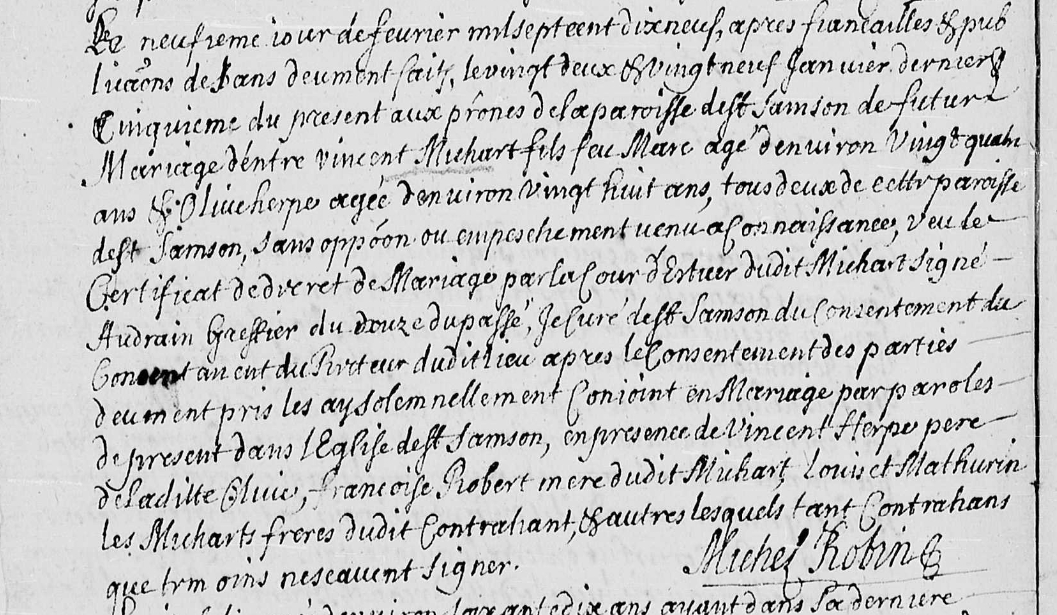 Le neufieme iour de fevrier mil sept cent dix neuf, apres fiancailles & pub
licaons de Bans deument faits, le vingt deux & vingt neuf Janvier dernier &
Cinquieme du present aux prônes de la paroisse de St Samson de futur
Mariage d'entre vincent Michart fils feu Marc agé denviron Vingt quatre
ans & Olive herpe agéé denviron vingt huit ans, tous deux de cette paroisse
de St Samson, sans oppoôn ou empeschement venu a Connaissance, veu le
Certificat de decret de Mariage par la Cour d' dudit Michart signé
Audrain Greffier du douze du passé, Je Curé de St Samson du Consentement du
Consentant du Recteur dudit lieu apres le Consentement des parties
deument pris les ay solemnellement Conjoint en Mariage par paroles
de present dans l'Eglise de St Samson, en presence de Vincent Herpe pere
de Ladite Olive, francoise Robert mere dudit Michart, Louis et Mathurin
les Micharts freres dudit Contrahant, & autres lesquels tant Contrahans
que temoins ne scavent signer.
Michel Robin
environ soixante dix ans ayant dans sa derniere